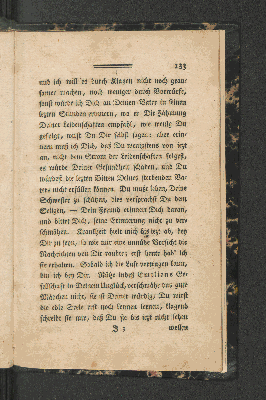 133
und ich will es durch Klagen nicht noch grau-
samer machen, noch weniger durch Vorwürfe,
sonst würde ich Dich an Deinen Vater in seinen
letzten Stunden erinnern, wo er Dir Zähmung
Deiner Leidenschaften empfahl, wie wenig Du
gefolgt, mußt Du Dir selbst sagen: aber erin-
nern muß ich Dich, daß Du wenigstens von jezt
an, nicht dem Strom der Leidenschaften folgest,
es würde Deiner Gesundheit schaden, und Du
würdest die letzten Bitten Deines sterbenden Va-
ters nicht erfüllen können. Du mußt leben, Deine
Schwester zu schützen, dies versprachst Du dem
Seligen. — Dein Freund erinnert Dich daran,
und bittet Dich, seine Erinnerung nicht zu ver-
schmähen. Krankheit hielt mich bis jezt ab, bey
Dir zu seyn, so wie nur eine unnütze Vorsicht die
Nachrichten von Dir raubte; erst heute hab' ich
sie erhalten. Sobald ich die Luft vertragen kann,
bin ich bey Dir. Nütze indeß Karolinens Ge-
sellschaft in Deinem Unglück, verschmähe das gute
Mädchen nicht, sie ist Deiner würdig, Du mußt
die edle Seele erst noch kennen lernen, klagend
schreibt sie mir, daß Du sie bis jezt nicht sehen
J 3
wollen